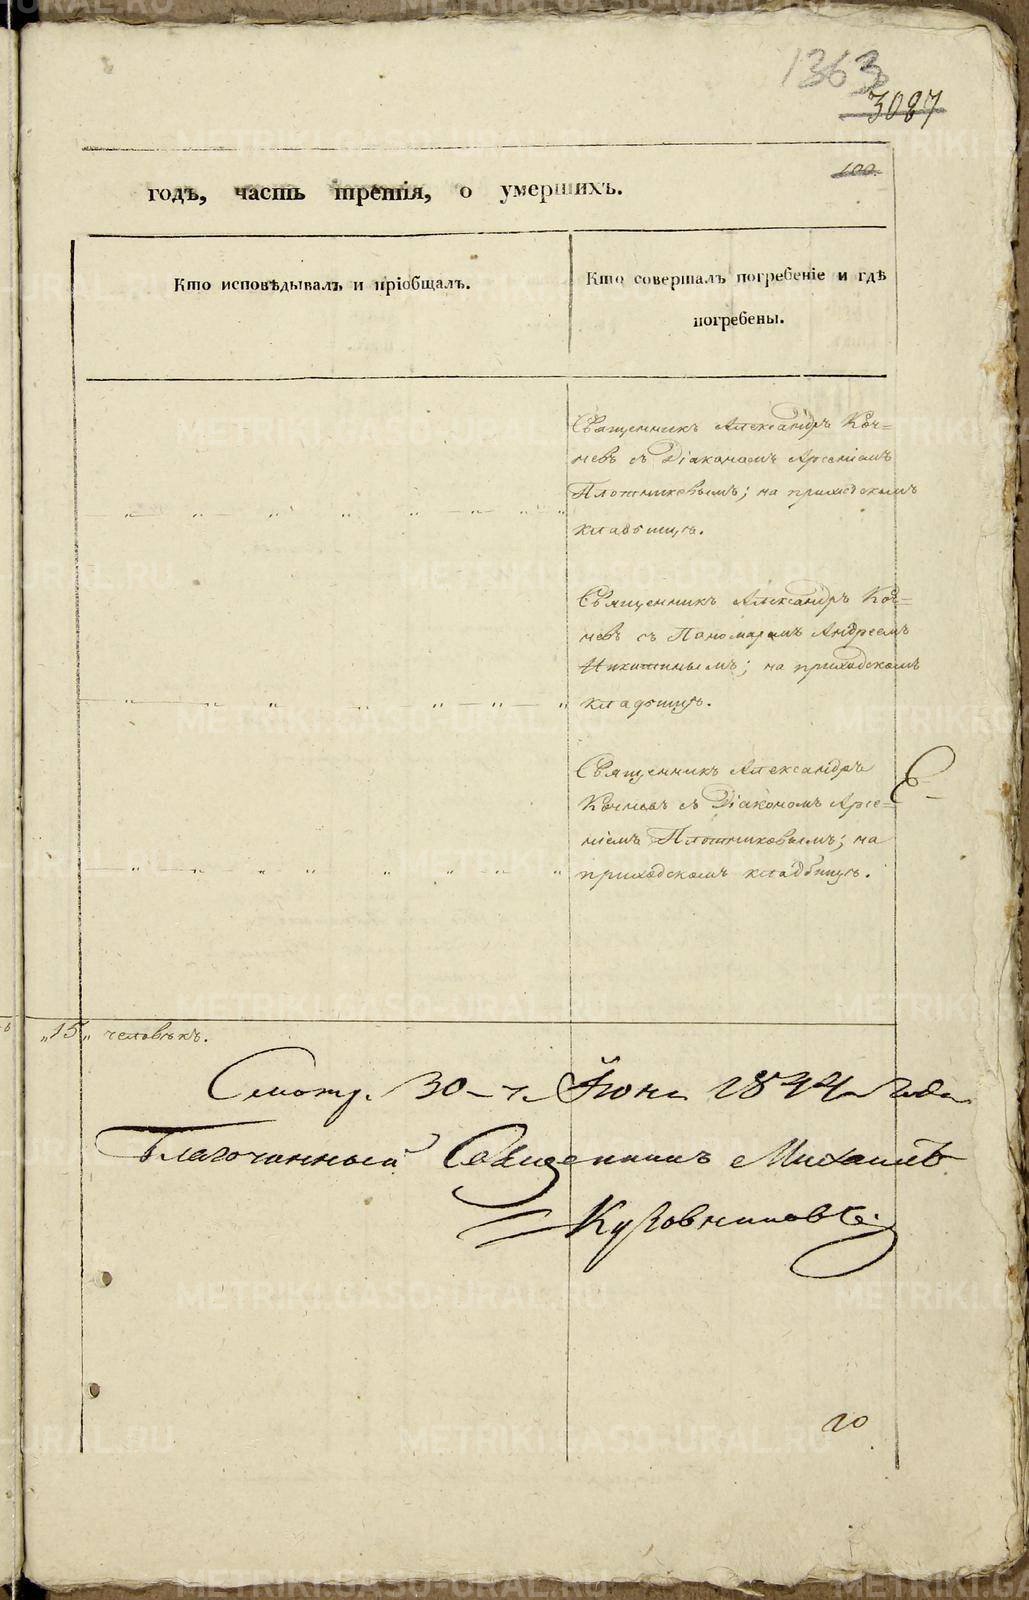 1363
3087
100.
годъ, часть третія, о умершихъ.
Кто исповѣдывалъ и пріобщалъ.
Кто совершалъ погребеніе и гдѣ
погребены.
Священникъ Александръ Коч=
невъ съ Діакономъ Арсеніемъ
Плотниковымъ; на приходскомъ
кладбищѣ.
Священникъ Александръ Коч=
невъ съ Пономаремъ Андреемъ
Никитинымъ; на приходскомъ
кладбищѣ.
Священникъ Александръ
Кочневъ съ Діакономъ Арсе=
ніемъ Плотниковымъ; на
приходскомъ кладбищѣ.
„15„ человѣкъ.
Смотр. 30 - г. Іюня 1844 года
Благочинный Священникъ Михаилъ
Кузовниковъ
20
METRIKI.GASO-URAL.RU